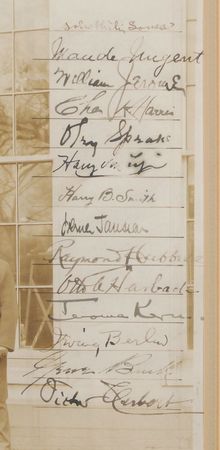 John Philip Sousa
Maude Nugent
William Jerome
Chas K Harris
Oley Speaks
Harry
Harry B. Smith
Tausian
Raymond Hubbell
Otto Harbach
Jerome Kern
Irving Berlin
Victor Herbert